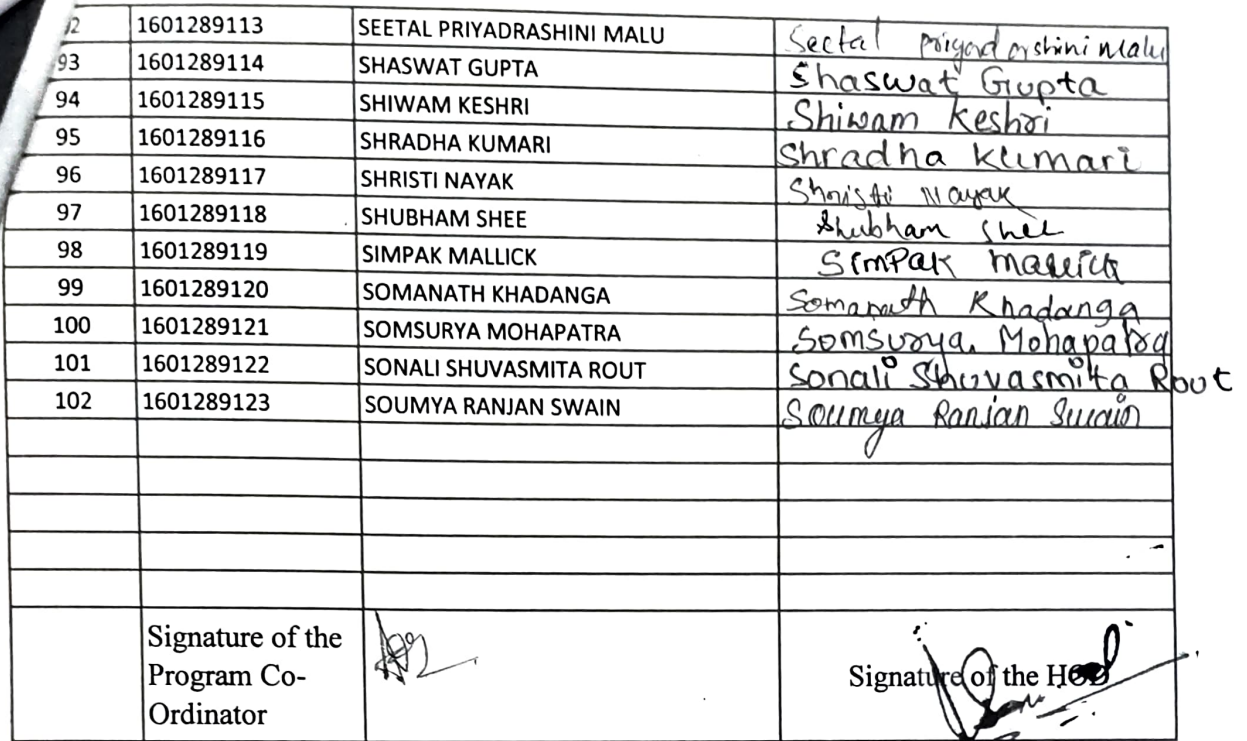 2 1601289113 SEETAL PRIYADRASHINI MALU Seetal priyadarshini Malu
93 1601289114 SHASWAT GUPTA Shaswat Gupta
94 1601289115 SHIWAM KESHRI Shiwam Keshri
95 1601289116 SHRADHA KUMARI Shradha Kumari
96 1601289117 SHRISTI NAYAK Shristi Nayak
97 1601289118 SHUBHAM SHEE Shubham Shee
98 1601289119 SIMPAK MALLICK SimPak Mallick
99 1601289120 SOMANATH KHADANGA Somanath Khadanga
100 1601289121 SOMSURYA MOHAPATRA Somsurya Mohapatra
101 1601289122 SONALI SHUVASMITA ROUT Sonali Shuvasmita Rout
102 1601289123 SOUMYA RANJAN SWAIN Soumya Ranjan Swain
Signature of the
Program Co-
Ordinator
Signature of the HOD